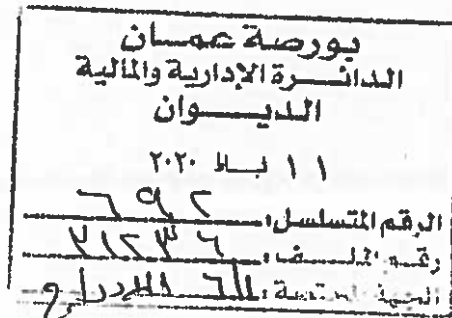 بورصة عمان
الدائرة الإدارية والمالية
الديوان
١١ ٢٠٢٠
الرقم المتسلسل: ٦٩٢
رقم الملف: ٣١٢٣٦
الجهة المختصة: الإدراج